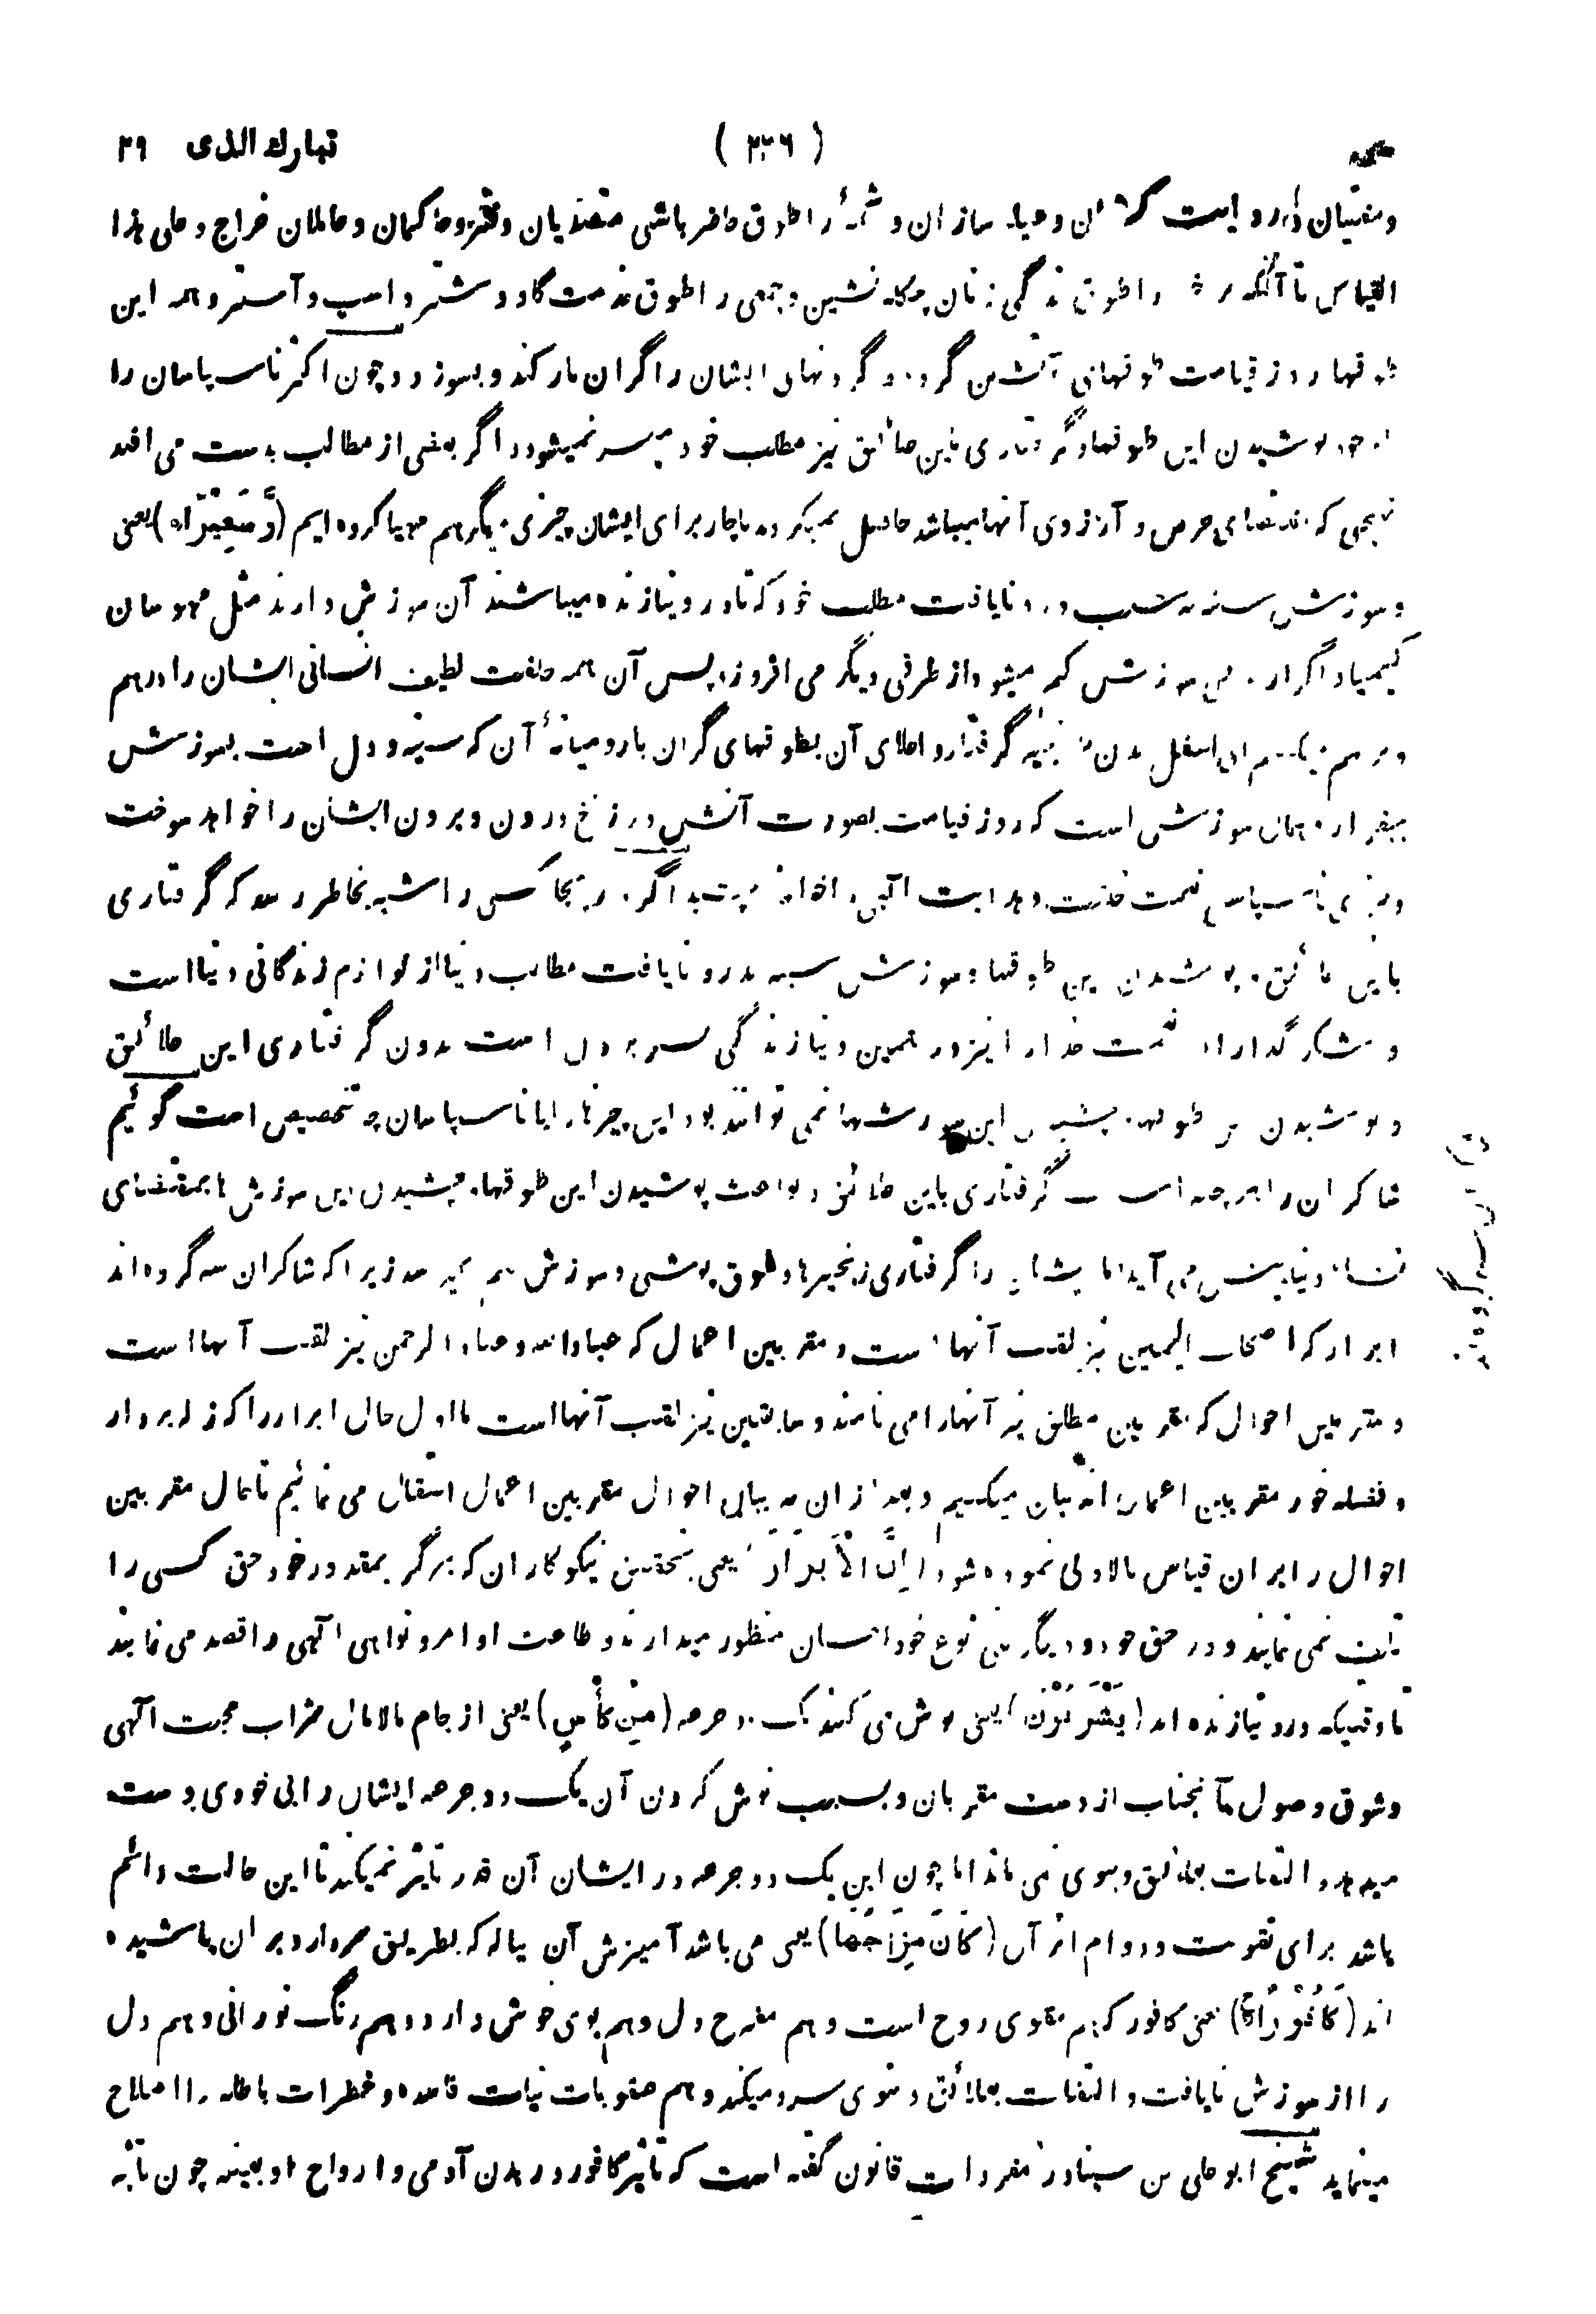 تبارك الذى ٢٩
( ٢٣٦ )
و حیله سازان و را طوق حاضر باشی متصدیان و دفتر و حاکمان و عاملان خراج و علی هذا
القیاس تا آنکه را طوق بندگی زنان چکله نشین و جمعی را طوق خدمت گاو و شتر و اسپ و آستر و همه این
طوقها روز قیامت طوقهای آتشین گردد و گردنهای ایشان را گران بار کند و بسوزد و چون اکثر ناسپاسان را
پوشیدن این طوقها و گرفتاری باین علائق نیز مطلب خود میسر نمیشود و اگر بعضی از مطالب بدست می افتد
نهجی که مقتضای حرص و آرزوی آنها میباشد حاصل نمیگردد ناچار برای ایشان چیزی دیگر هم مهیا کرده ایم (وَّسَعِیْرًا) یعنی
و سوزش سینه بسبب درد نایافت مطلب خود که تا در دنیا زنده میباشند آن سوزش دارند مثل مهوسان
کیمیا و اگر از سوزش کم میشود از طرفی دیگر می افروزد پس آن همه خلقت لطیف انسانی ایشان را درهم
و برهم اسفل بدن گرفتار و اعلای آن بطوقهای گران بار و میانۀ آن که سینه و دل است بسوزش
بیقرار و همان سوزش است که روز قیامت بصورت آتش دوزخ درون و برون ایشان را خواهد سوخت
ناسپاسی نعمت خلقت و هدایت الهی اگر درینجا کسی را شبه بخاطر رسد که گرفتاری
باین علائق و پوشیدن این طوقها و سوزش سینه بدرد نایافت مطالب دنیا از لوازم زندگانی دنیا است
و شکر گذاران نعمت خدا را نیز در همین دنیا زندگی بسر بردن است بدون گرفتاری این علائق
و پوشیدن این طوقها و چشیدن این سوزشها نمی توانند بود این چیزها را با ناسپاسان چه تخصیص است گوئیم
شاکران را هر چند گرفتاری باین علائق و بواعث پوشیدن این طوقها و چشیدن این سوزش ها بمقتضای
دنیا پیش می آید اما ایشان را گرفتاری زنجیرها و طوق پوشی و سوزش بهم نمیرسد زیرا که شاکران سه گروه اند
ابرار که اصحاب الیمین نیز لقب آنها است و مقربین اعمال که عباد الله و عباد الرحمن نیز لقب آنها است
و مقربین احوال که مقربین مطلق نیز آنها را می نامند و سابقین نیز لقب آنها است ما اول حال ابرار را که زله بردار
و فضله خور مقربین اعمال اند بیان میکنیم و بعد ازان به بیان احوال مقربین اعمال انتقال می نمائیم تا حال مقربین
احوال را بران قیاس بالاولی نموده شود (اِنَّ الْاَبْرَارَ) یعنی بتحقیق نیکوکاران که هرگز بمقدور خود حق کسی را
تلف نمی نمایند و در حق خود و دیگر بنی نوع خود احسان منظور میدارند و طاعت اوامر و نواهی الهی را قصد می نمایند
تا وقتیکه در دنیا زنده اند (یَشْرَبُوْنَ) یعنی نوش می کنند یک دو جرعه (مِنْ كَأْسٍ) یعنی از جام مالامال شراب محبت الهی
و شوق وصول بآنجناب از دست مقربان و بسبب نوش کردن آن یک دو جرعه ایشان را بی خودی دست
میدهد و التفات بعلائق دنیوی نمی ماند اما چون این یک دو جرعه در ایشان آن قدر تاثیر نمیکند تا این حالت دائم
باشد برای تقویت و دوام اثر آن (كَانَ مِزَاجُهَا) یعنی می باشد آمیزش آن پیاله که بطریق سردارو بران پاشیده
اند (كَافُوْرًا) یعنی کافور که هم مقوی روح است و هم مفرح دل و هم بوی خوش دارد و هم رنگ نورانی و هم دل
را از سوزش نایافت و التفات بعلائق دنیوی سرد میکند و هم عفونات نیات فاسده و خطرات باطله را اصلاح
مینماید شیخ ابو علی بن سینا در مفردات قانون گفته است که تاثیر کافور در بدن آدمی و ارواح او بعینه چون تاثیر